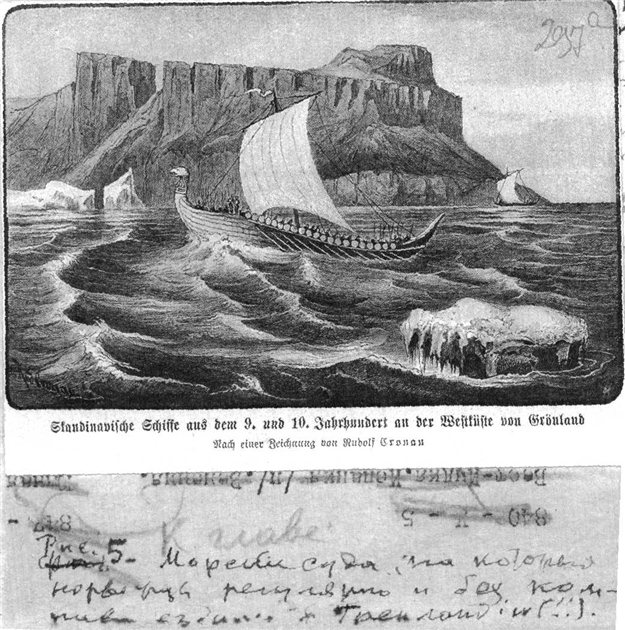 Skandinavische Schiffe aus dem 9. und 10. Jahrhundert an der Westküste von Grönland
Nach einer Zeichnung von Rudolf Cronau
К главе:
Рис. 5 - Морские суда, на которых
норвежцы регулярно и без ком-
паса ездили в Гренландию (!!).